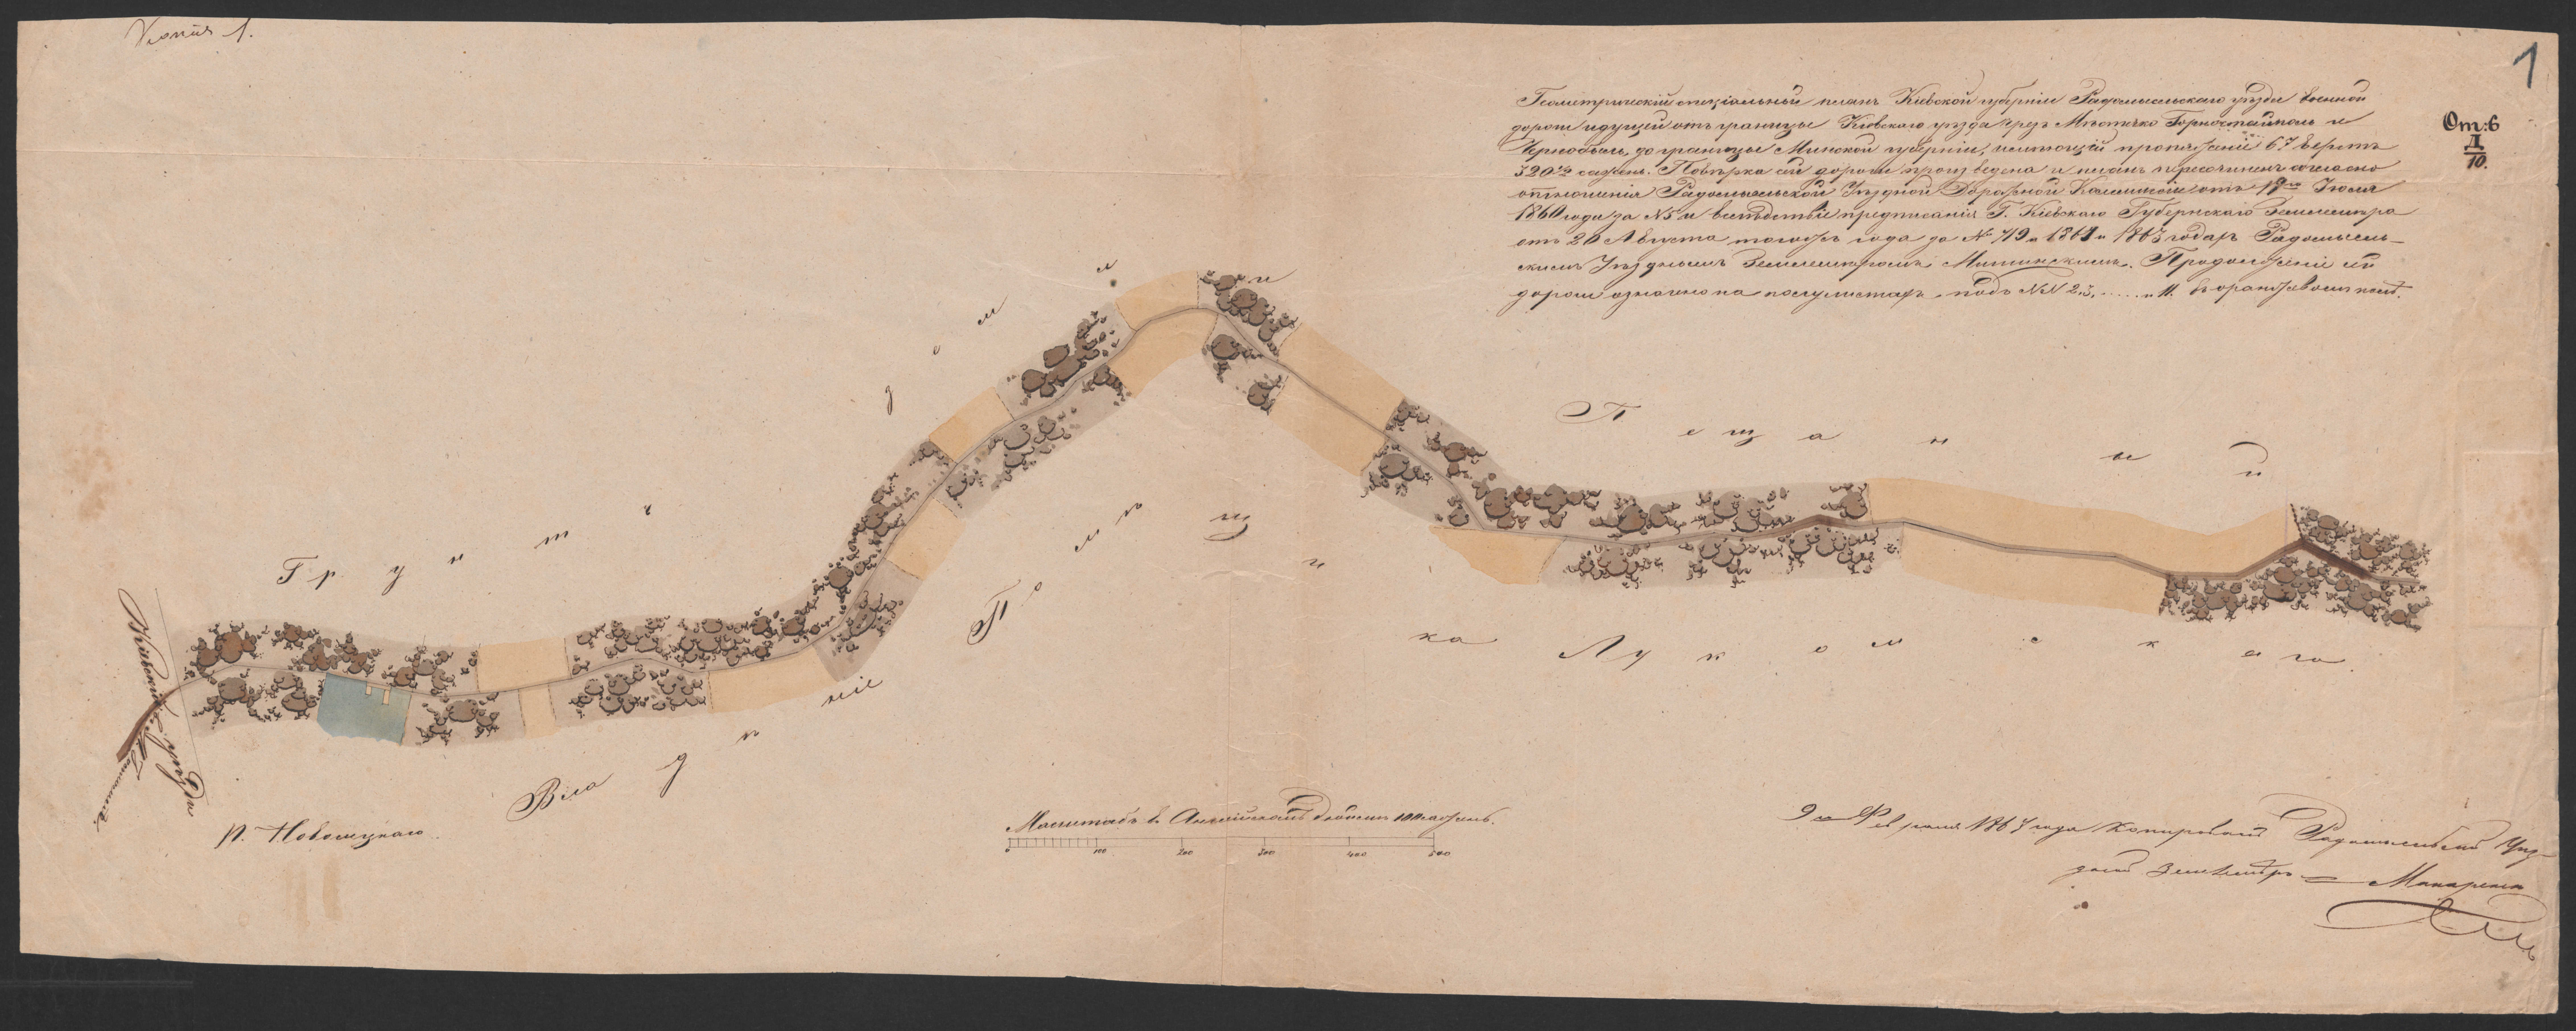 Копія 1.
1
От:6
Д
10.
Геометрическій спеціальный планъ Кіевской губерніи Радомысльскаго уѣзда военной
дороги идущей отъ границы Кіевскаго уѣзда чрезъ Мѣстечко Горностайполь и
Чернобыль, до границы Минской губерніи, имѣющій протяженіе 67 верстъ
320 сажень. Повѣрка сей дороги произведена и планъ пересочиненъ согласно
отношенія Радомысльской Уѣздной Дорожной Коммисіи отъ 19го Іюля
1860 года за №5 и вслѣдствіе предписанія Г. Кіевскаго Губернскаго Землемѣра
отъ 20 Августа тогожъ года за № 719 1861 и 1863 годахъ Радомысль-
скимъ Уѣзднымъ Землемѣромъ. Продолженіе сей
дороги означено на полулистахъ подъ №№ 2, 3, ...... и 11.
Грунтъ
Песчаный
Владѣніе
Помѣщика Лукомскаго.
Кіевскій уѣздъ
П. Новолуцкаго
Масштабъ въ Англійскомъ дюймѣ 100 сажень.
0 100 200 300 400 500
9го Февраля 1867 года Копировалъ Радомысльскій Уѣз-
дный Землемѣръ Макаренко